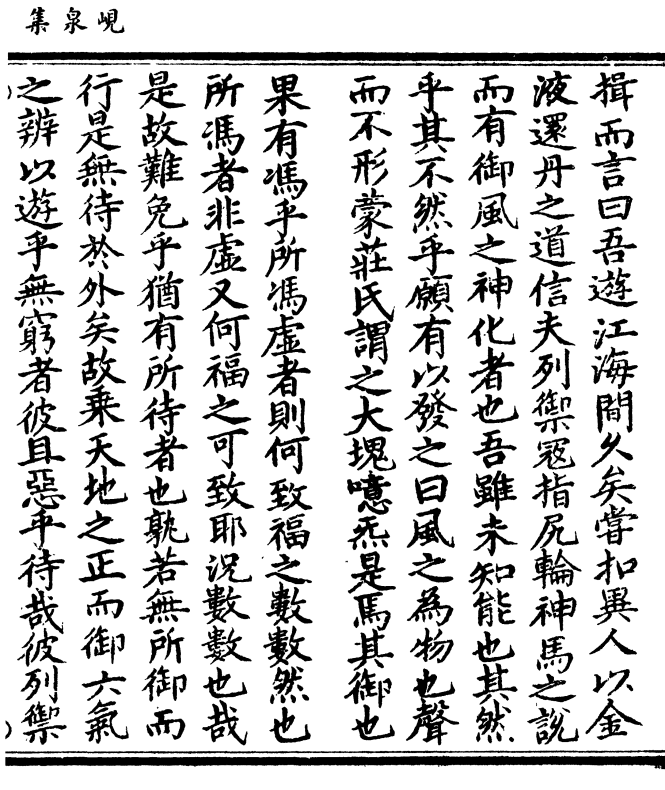 峴泉集
揖而言曰吾遊江海間久矣嘗扣異人以金
液還丹之道信夫列禦寇指尻輪神馬之說
而有御風之神化者也吾雖未知能也其然
乎其不然乎願有以發之曰風之為物也聲
而不形蒙莊氏謂之大塊噫炁是馬其御也
果有馮乎所馮虛者則何致福之數數然也
所馮者非虛又何福之可致耶況數數也哉
是故難免乎猶有所待者也孰若無所御而
行是無待於外矣故乘天地之正而御六氣
之辨以遊乎無窮者彼且惡乎待哉彼列禦